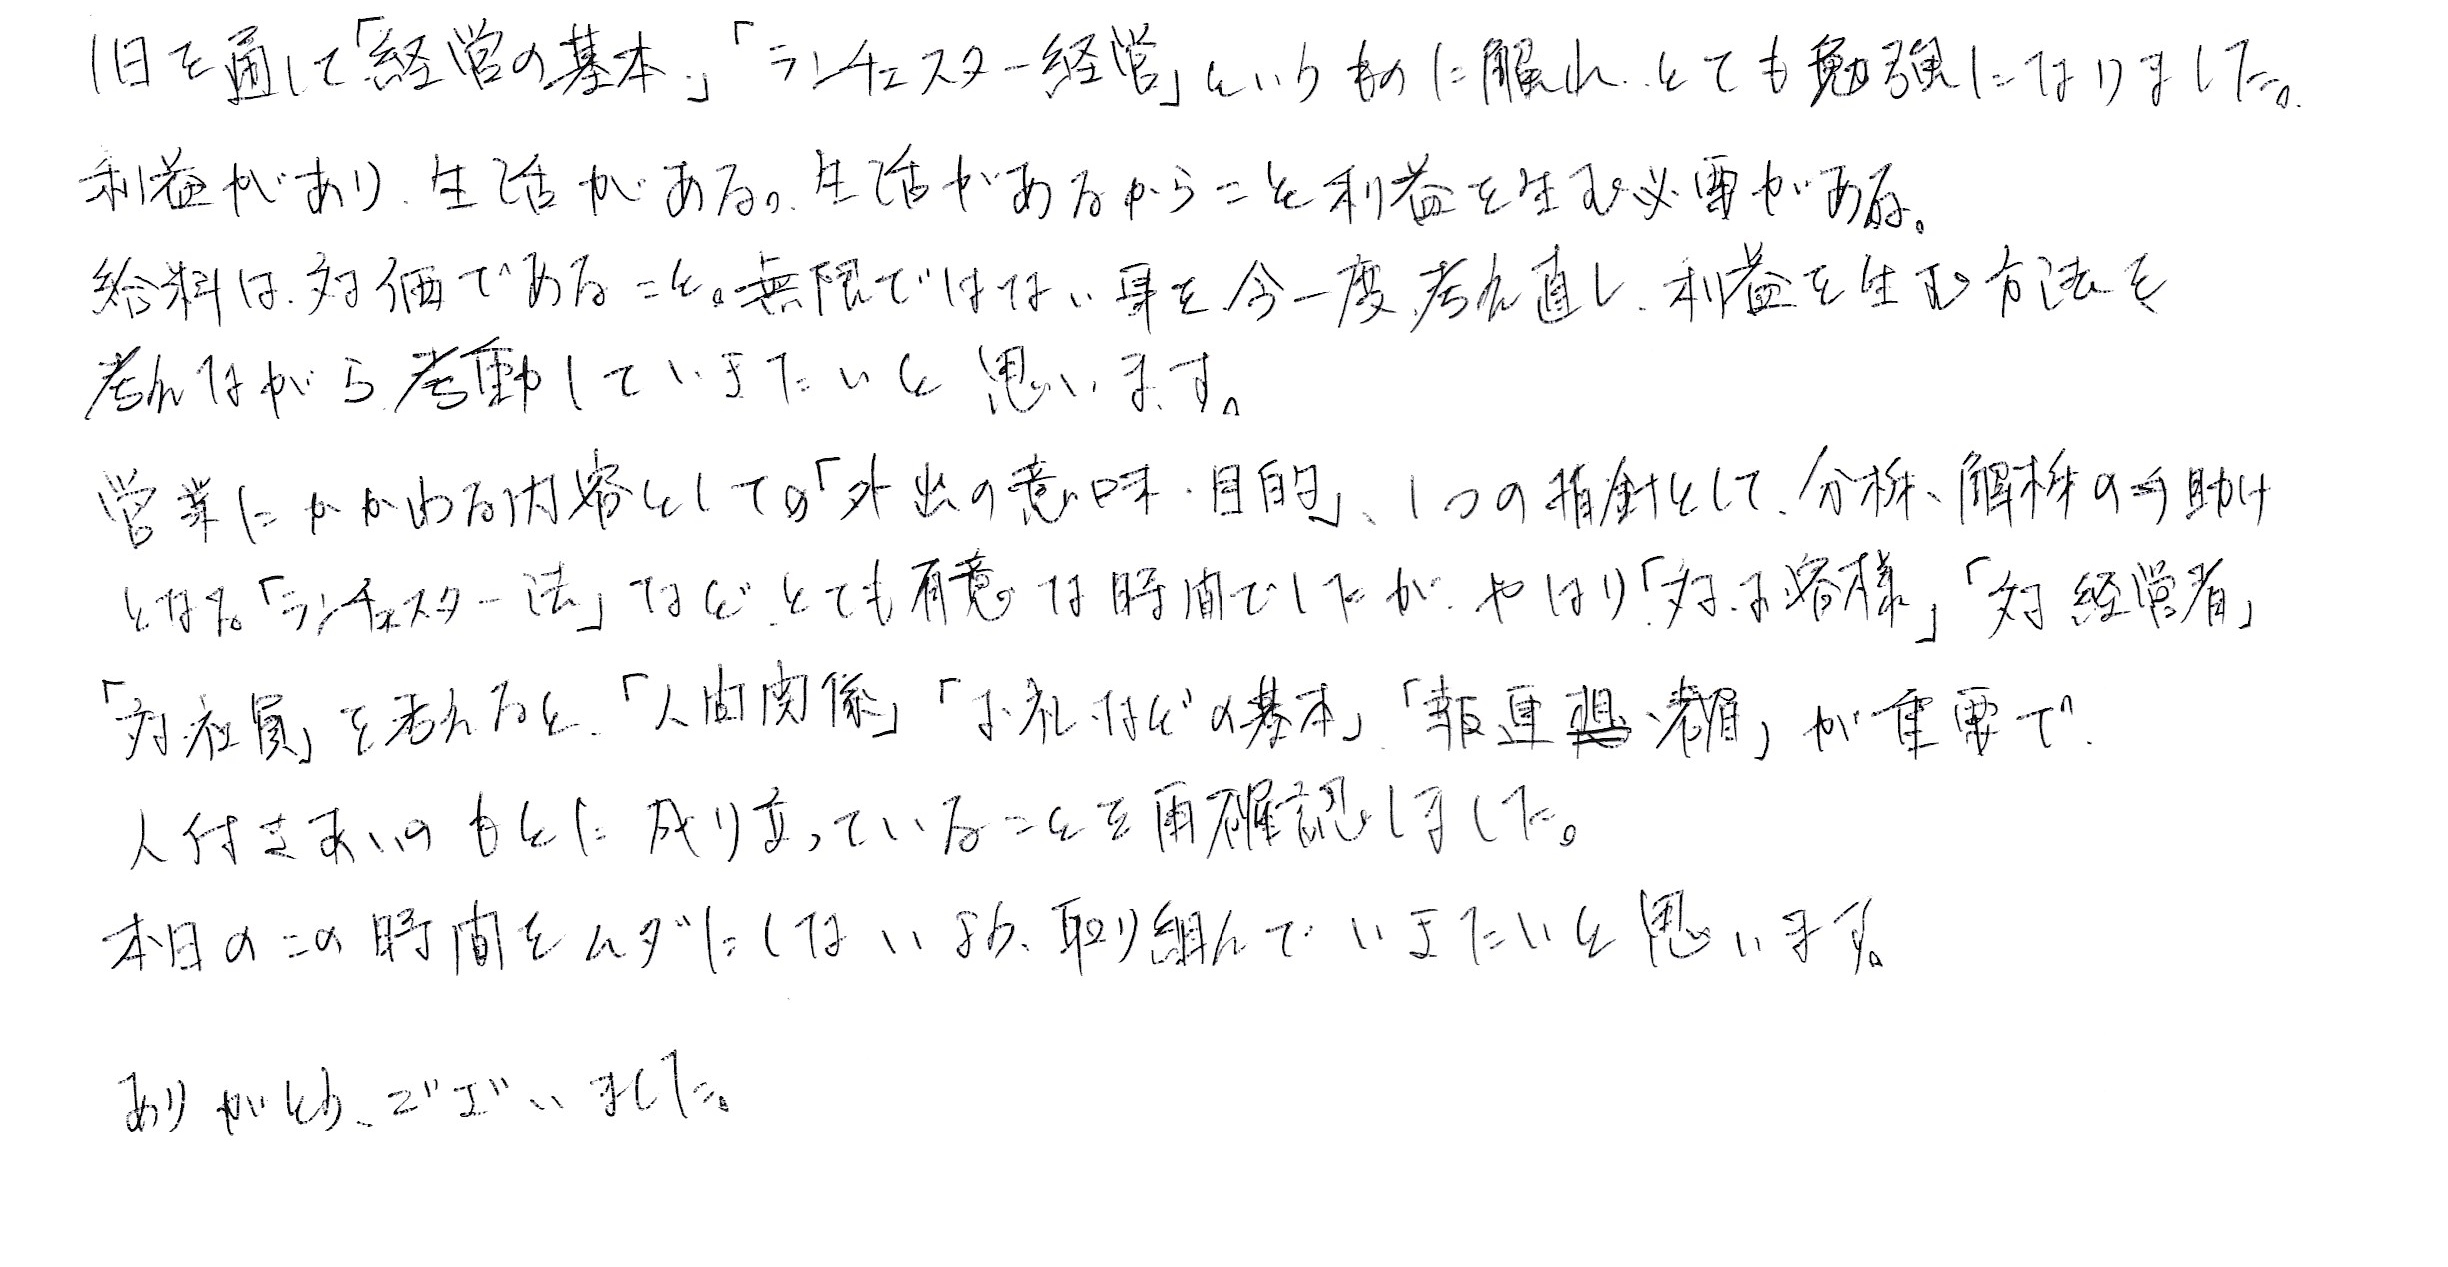 1日を通して「経営の基本」「ランチェスター経営」というものに触れ、とても勉強になりました。
利益があり、生活がある。生活があるからこそ利益を生む必要がある。
給料は、対価であること。無限ではない事を今一度、考え直し、利益を生む方法を
考えながら、考動していきたいと思います。
営業にかかわる内容としての「外出の意味・目的」、1つの指針として、分析、解析の手助け
となる「ランチェスター法」など、とても有意な時間でしたが、やはり「対、お客様」「対 経営者」
「対、社員」を考えると、「人間関係」「お礼、などの基本」、「報連相」が重要で、
人付きあいのもとに成り立っていることを再確認しました。
本日のこの時間をムダにしないよう、取り組んでいきたいと思います。
ありがとう、ございました。